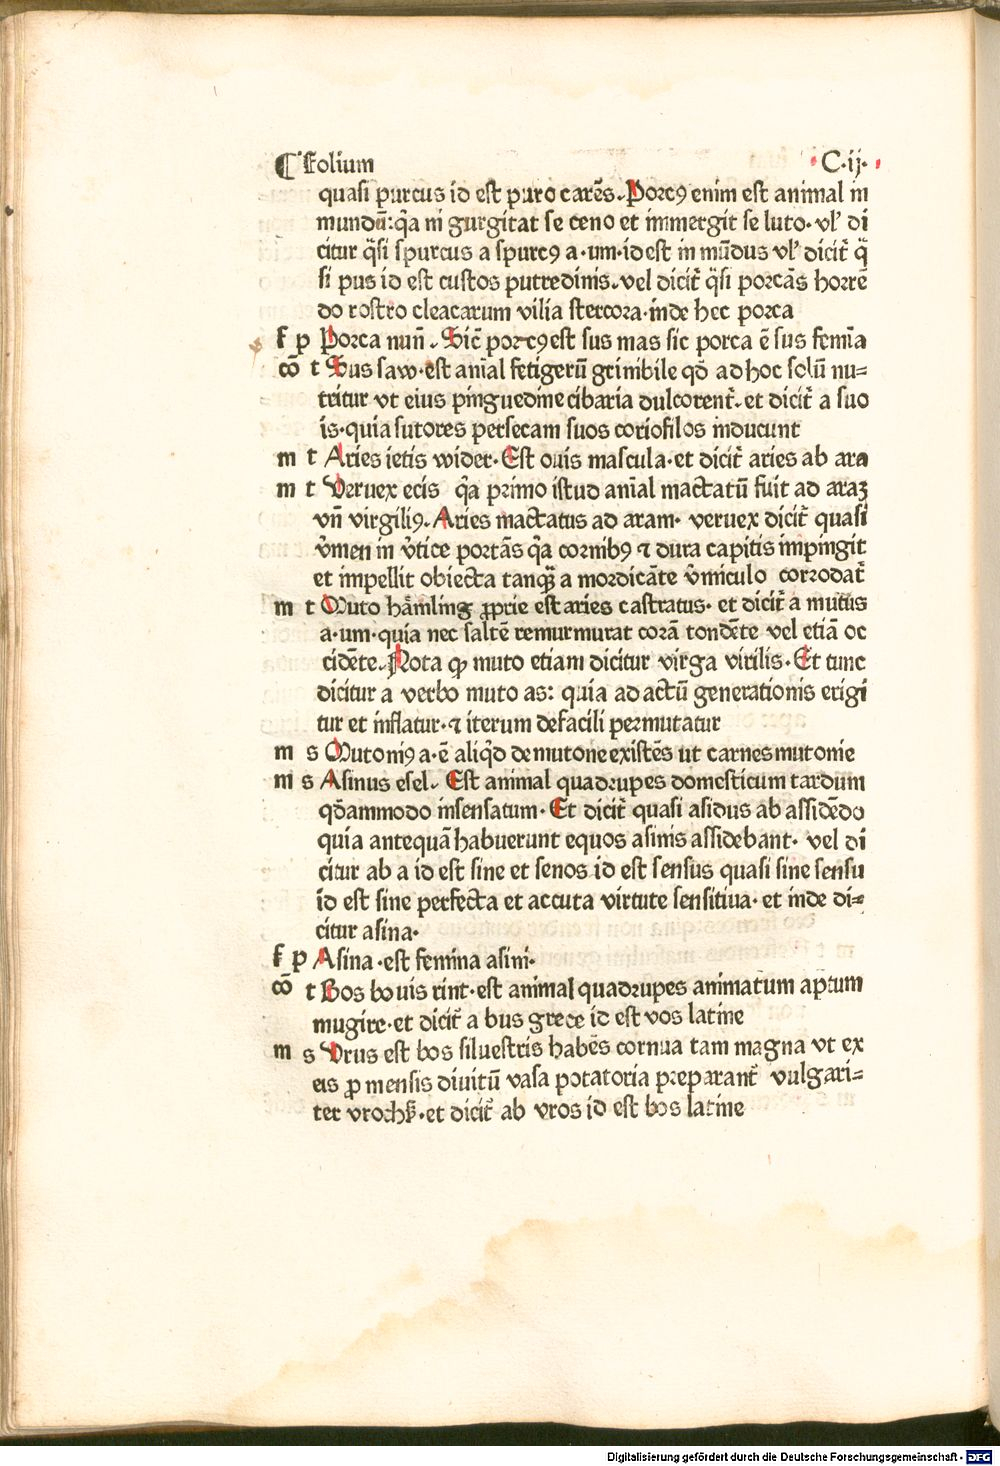 ¶ Folium C·ij·
quasi purcus id est puro carēs. Porcꝰ enim est animal in
mundū: qͣa ni gurgitat se ceno et immergit se luto· vlˀ di
citur q̄si spurcus a spurcꝰ a·um·id est in mūdus vlˀ dicit̄ q̄
si pus id est custos putredinis. vel dicit̄ q̄si porcās horrē
do rostro cleacarum vilia stercora·inde hec porca
f p Porca nun̄. Sic̄ porcꝰ est sus mas sic porca ē sus femīa
cō t Sus saw·est aniāl fetigerū grinibile qd̄ ad hoc solū nu=
tritur vt eius pinguedine cibaria dulcorent̄. et dicit̄ a suo
is·quia sutores persecam suos coriofilos inducunt
m t Aries ietis wider·Est ouis mascula·et dicit̄ aries ab ara
m t Veruex ecis qͣa primo istud aniāl mactatū fuit ad araꝫ
vn̄ virgiliꝰ. Aries mactatus ad aram· veruex dicit̄ quasi
v̄men in v̄tice portās qͣa cornibꝰ ⁊ dura capitis impingit
et impellit obiecta tanqꝫ a mordicāte v̄miculo corrodat̄
m t Muto hämling ꝓprie est aries castratus· et dicit̄ a mutus
a·um·quia nec saltē remurmurat corā tondēte vel etiā oc
cidēte. Nota ꝙ muto etiam dicitur virga virilis·Et tunc
dicitur a verbo muto as: quia ad actū generationis erigi
tur et inflatur·⁊ iterum defacili permutatur
m s Mutoniꝰ a·ē aliqͥd de mutone existēs ut carnes mutonie
m s Asinus esel. Est animal quadrupes domesticum tardum
qd̄ammodo insensatum·Et dicit̄ quasi asidus ab assidēdo
quia antequā habuerunt equos asinis assidebant· vel di
citur ab a id est sine et senos id est sensus quasi sine sensu
id est sine perfecta et accuta virtute sensitiua·et inde di=
citur asina·
f p Asina·est femina asini·
cō t Bos bouis rint·est animal quadrupes animatum aptum
mugire·et dicit̄ a bus grece id est vos latine
m s Vrus est bos siluestris habēs cornua tam magna vt ex
eis ꝓ mensis diuitū vasa potatoria preparant̄ vulgari=
ter vrochß·et dicit̄ ab vros id est bos latine
Digitalisierung gefördert durch die Deutsche Forschungsgemeinschaft - DFG